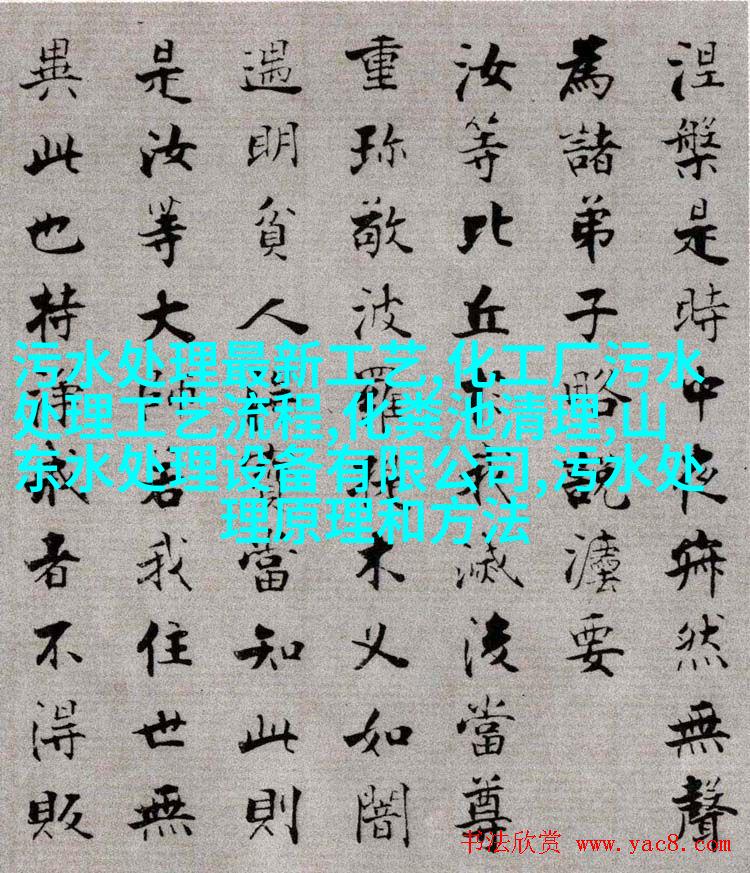 涅槃是時中夜寂然無聲
為諸弟子略說灋要
汝等比丘於我滅後當尊
重珎敬波羅提木叉如闇
遇明貧人得寶當知此則
是汝等大師若我住世無
異此也持淨戒者不得販
污水处理最新工艺,化工厂污水
处理工艺流程,化粪池清理,山
东水处理设备有限公司,污水处
理原理和方法
书法欣赏 www.yac8.com